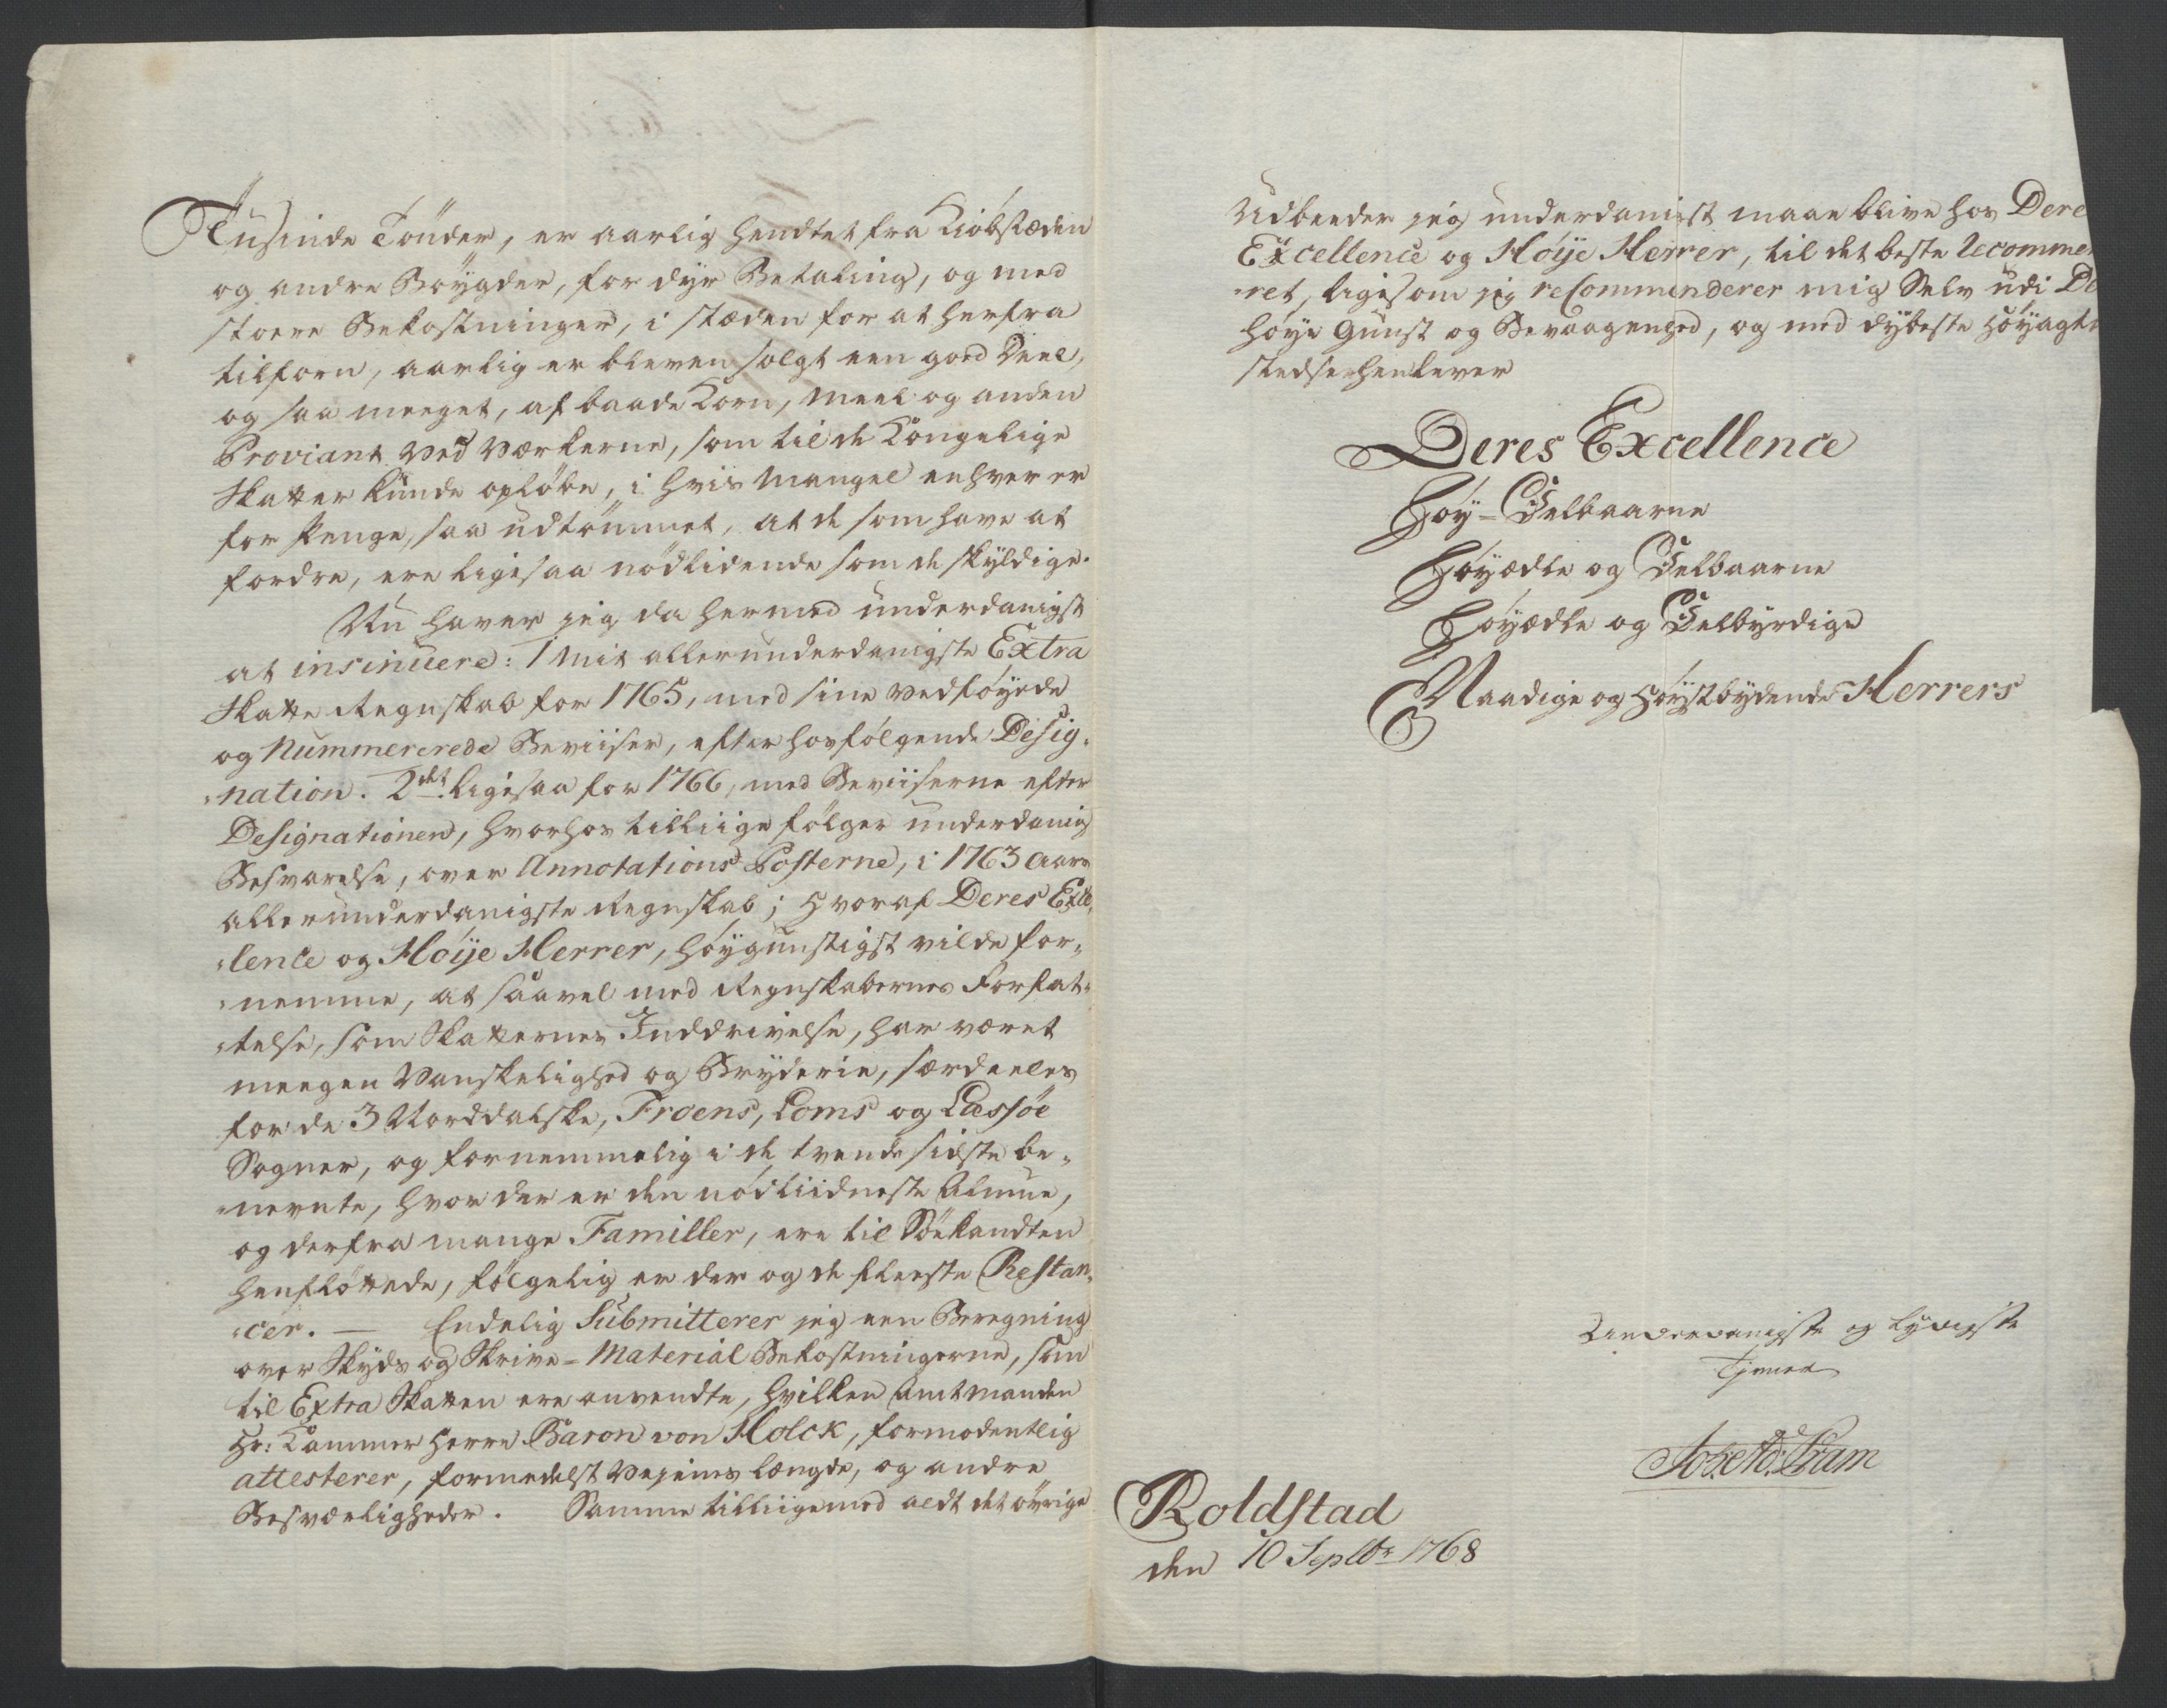 Tusinde Tönder, er aarlig hendtet fra Kiöbstæden
og andre Böygder, for dyr Betaling, og med
stoere Bekostninger, i stæden for at herfra
tilforn, aarlig er bleven solgt een goed Deel,
og saa meeget, af baade Korn, Meel og anden
Proviant ved Værkerne, som til de Kongelige
Skatter kunde opløbe, i hvis Mangel enhver er
for Penge, saa udtömmet, at de som have at
fordre, ere ligesaa nödlidende som de skyldige.
Nu haver jeg da hermed underdanigst
at insinuere: 1 Mit allerunderdanigste Extra
Skatte Regnskab for 1765, med sine vedføyede
og Nummererede Beviiser, efter hosfölgende Desig-
-nation. 2det Ligesaa for 1766, med Beviiserne efter
Designationen, hvorhos tilliige fölger underdanig
Besvarelse, over Annotations Posterne, i 1763 Aars
allerunderdanigste Regnskab; Hvoraf Deres Excel-
-lence og Höije Herrer, höygunstigst vilde for-
-nemme, at saavel med Regnskabernes Forfat-
-telse, som Skatternes Inddrivelse, har været
meegen Vanskelighed og Bryderie, særdeeles
for de 3 Norddalske, Froens, Loms og Læssöe
Sogner, og fornemmelig i de tvende sidste be-
-nevnte, hvor der er den nödliidneste Almue,
og derfra mange Familler, ere til Söekandten
henflöttede, fölgelig er der og de fleeste Restan-
-cer. — Endelig Submitterer jeg een Beregning
over Skyds og Skrive-Material Bekostningerne, som
til Extra Skatten ere anvendte, hvilken Amtmanden
Hr: Kammer Herre Baron von Holck, formodentlig
attesterer, formedelst Vejens Længde, og andre
Besværligheder. Samme tilliigemed aldt det övrige
Udbeeder jeg underdanigst maae blive hos Dere
Excellence og Höije Herrer, til det beste Recomme
-ret, ligesom jeg recommenderer mig Selv udi De
höye Gunst og Bevaagenhed, og med dybeste Höyagt
stedse henlever
Deres Excellence
Höy-Velbaarne
Höyædle og Velbaarne
Höyædle og Velbyrdige
Naadige og Höystbydende Herrers
Underdanigste og lydigste
Tjener
Roldstad
den 10 Septbr 1768